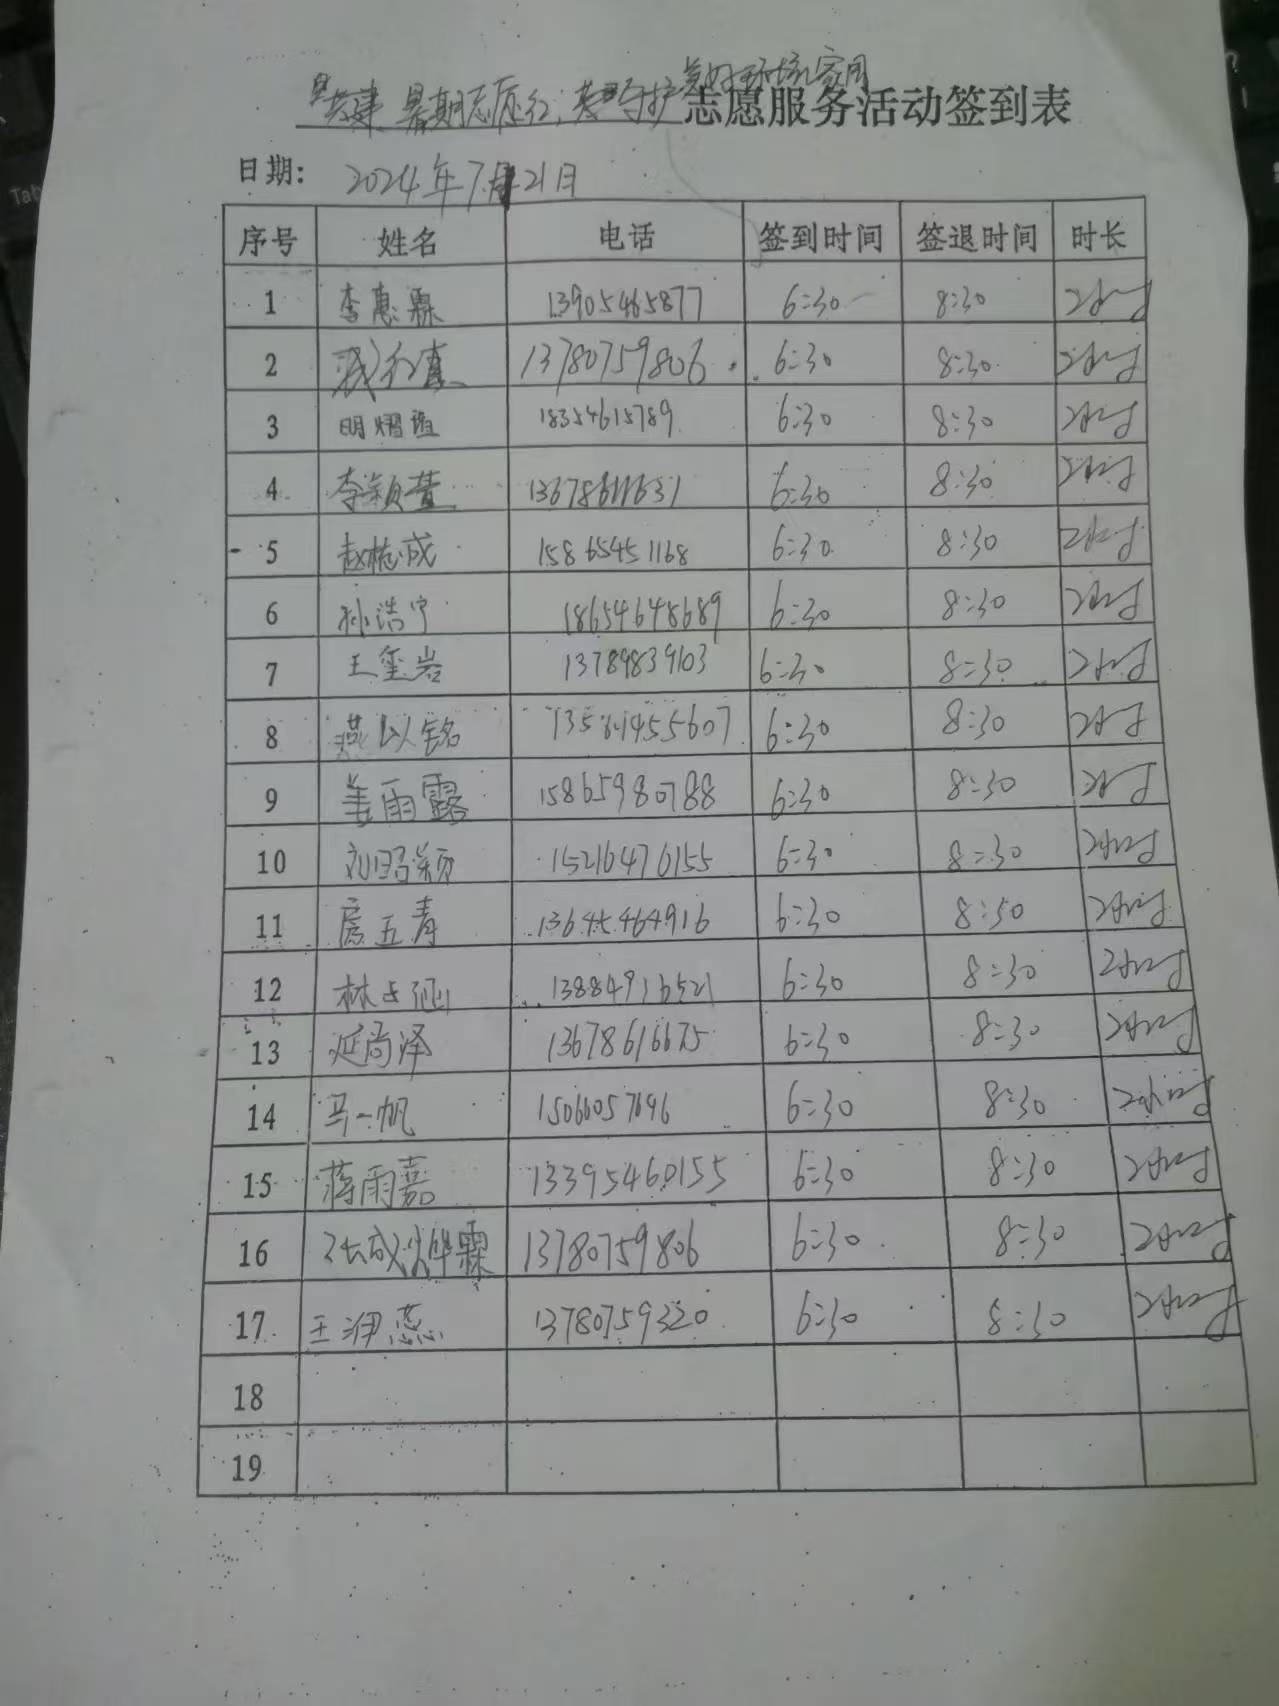 共建 暑期志愿红, 共 守护美好环境家园
志愿服务活动签到表
日期: 2024年7月21日
序号 姓名 电话 签到时间 签退时间 时长
1 李惠霖 13905465877 6:30 8:30 2小时
2 13780759806 6:30 8:30 2小时
3 明熠 18354615789 6:30 8:30 2小时
4 李颖萱 13678611631 6:30 8:30 2小时
5 赵栋成 15865451168 6:30 8:30 2小时
6 孙浩宁 18654648689 6:30 8:30 2小时
7 王玺岩 13789839103 6:30 8:30 2小时
8 燕以铭 6:30 8:30 2小时
9 姜雨露 15865980788 6:30 8:30 2小时
10 刘昭颖 15216476155 6:30 8:30 2小时
11 五青 13645464916 6:30 8:50 2小时
12 林 涵 13884916521 6:30 8:30 2小时
13 延尚泽 13678616675 6:30 8:30 2小时
14 马一帆 6:30 8:30 2小时
15 蒋雨嘉 13395460155 6:30 8:30 2小时
16 霖 13780759806 6:30 8:30 2小时
17 王 蕊 13780759320 6:30 8:30 2小时
18
19
Tab